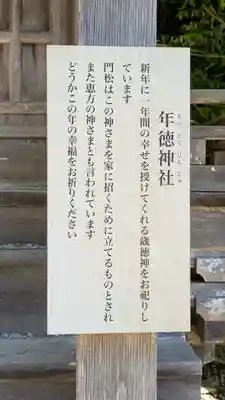 年徳神社
新年に一年間の幸せを授けてくれる歳徳神をお祀りし
ています
門松はこの神さまを家に招くために立てるものとされ
また恵方の神さまとも言われています
どうかこの年の幸福をお祈りください